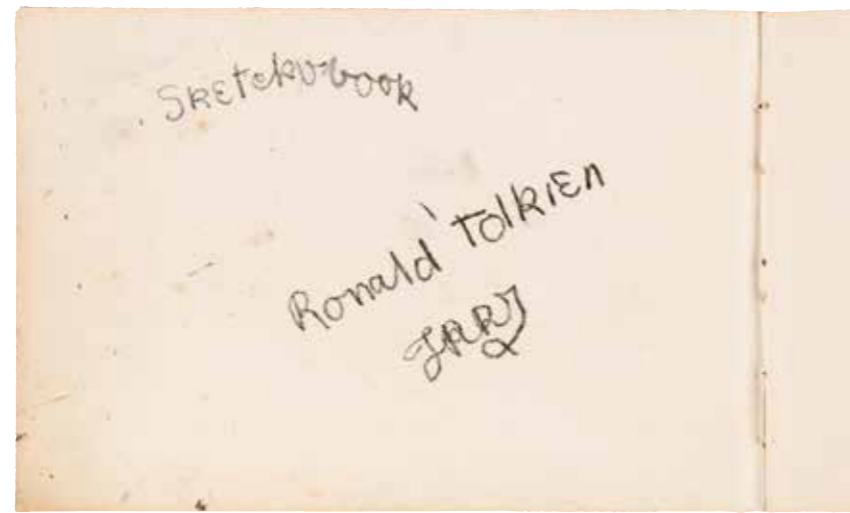 Sketch-book
Ronald Tolkien
JRRT